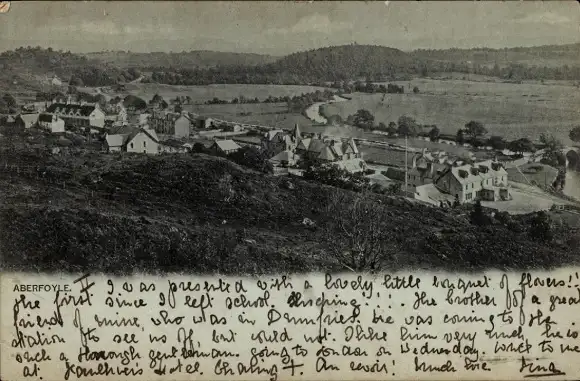 ABERFOYLE.
I was presented with a lovely little bouquet of flowers!!
the first since I left school lisping!!! The brother of a great
friend of mine, who was in Dumfries, he was coming to the
station to see us off, but could not. I like him very much, he is
such a thorough gentleman. going to London on Wednesday, write to me
at Hotel Charing X. Au revoir! Much love.